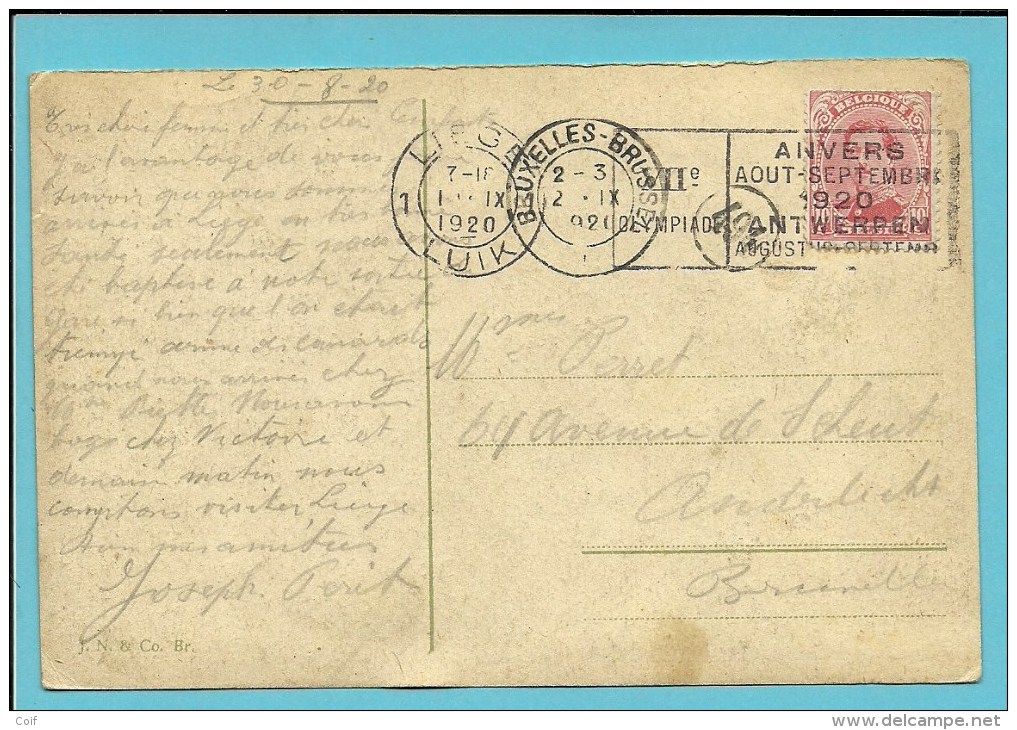 Le 30-8-20
Très chère femme et très cher
y a l'avantage de vous
savoir que nous sommes
seulement nous
baptisé à notre sortie
gare si bien que l'on était
trempé comme des canards
quand nous arrives chez
Mme Piette Nous avons
logé chez Victoire et
demain matin nous
comptons visiter Liège
mes amitiés
Joseph
J. N. & Co. Br.
LIEGE
1
7-18
IX
1920
LUIK
BRUXELLES-BRUSSEL
2-3
2 IX
1920
VIIe
OLYMPIADE
ANVERS
AOUT-SEPTEMBRE
1920
ANTWERPEN
AUGUSTUS-SEPTEMB
BELGIQUE
10 10
Mmes Perret
64 Avenue de Scheut
Anderlecht
Bruxelles
Coif
www.delcampe.net